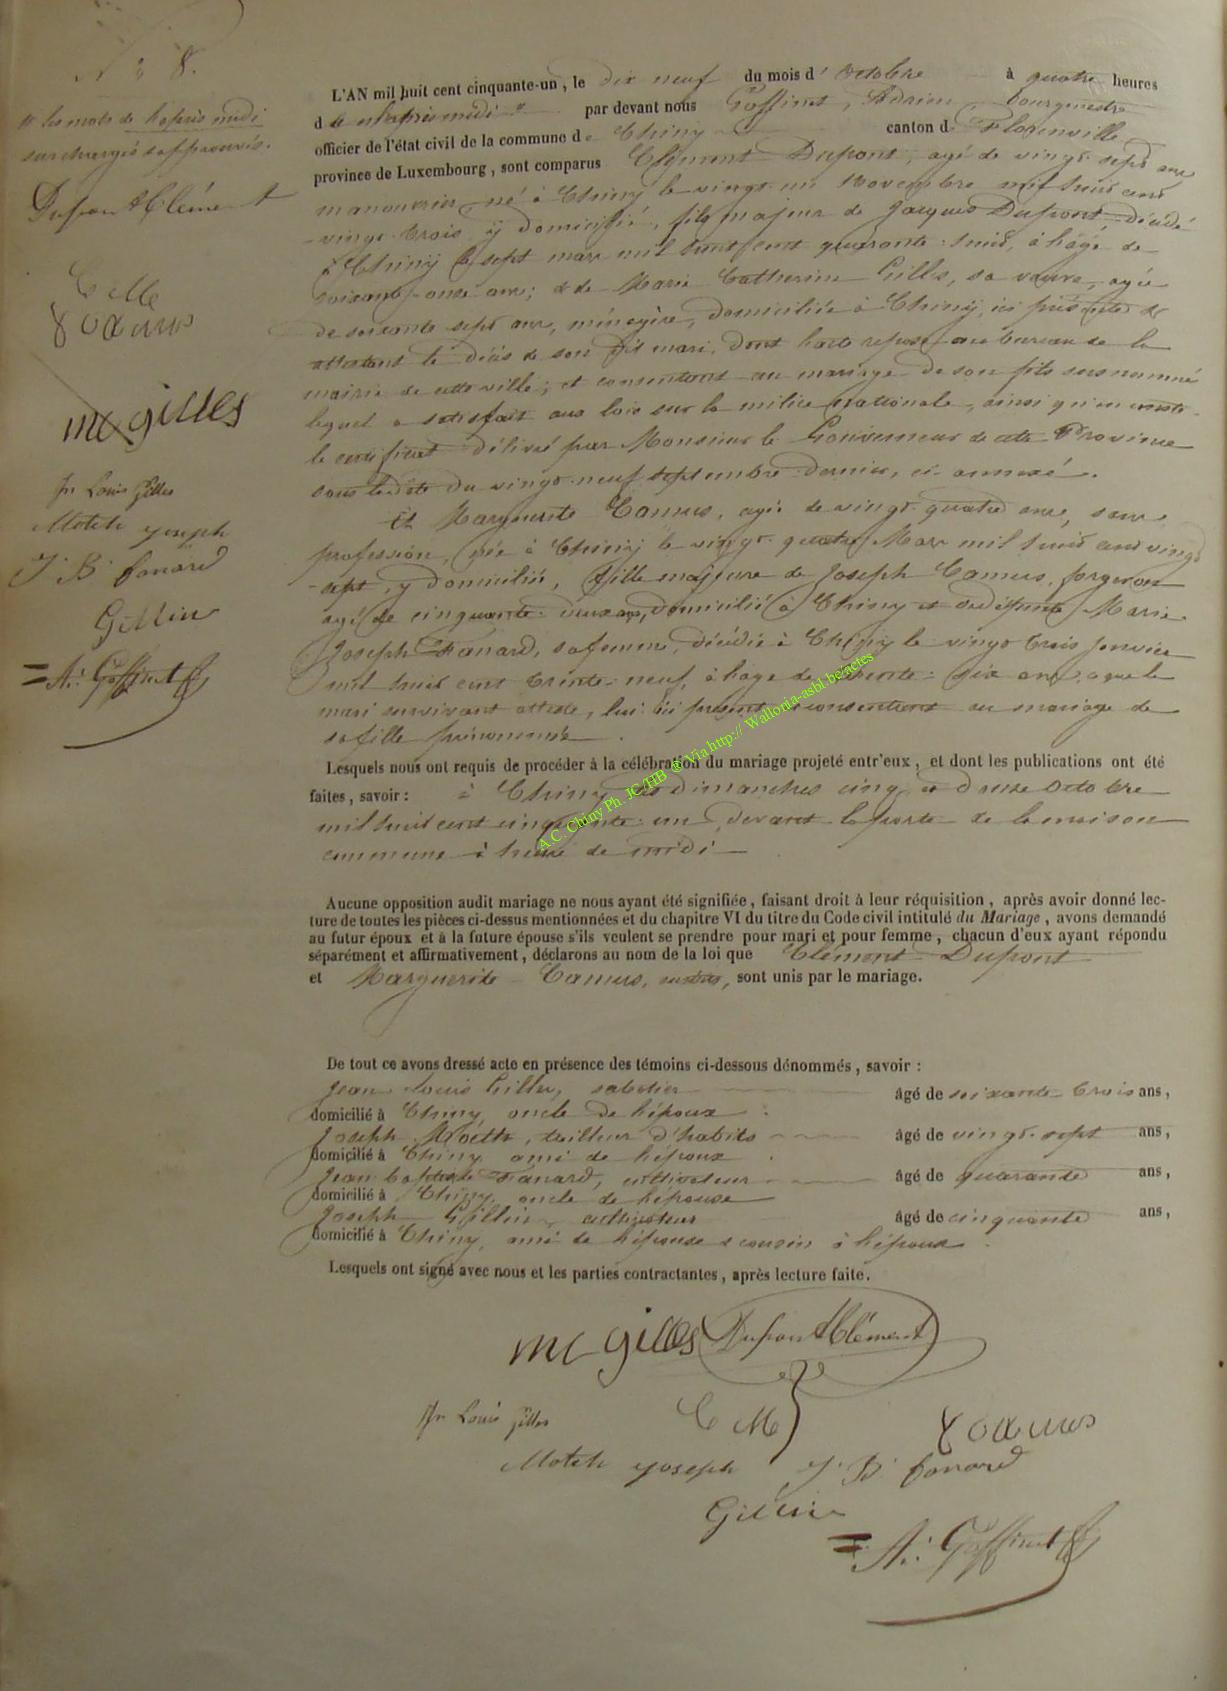 N° 8.
les mots de l'après midi
surchargés approuvés.
Dupont Clément
Camus
mc gilles
Jn Louis Gilles
Motch Joseph
J B fanard
Gillin
A. Goffinet
L'AN mil huit cent cinquante-un, le dix neuf du mois d'Octobre à quatre heures
de l'après midi par devant nous Goffinet, Adrien, bourgmestre
officier de l'état civil de la commune de Chiny canton de Florenville
province de Luxembourg, sont comparus Clément Dupont, agé de vingt-sept ans
manouvrier, né à Chiny le vingt un Novembre mil huit cent
vingt-trois, y domicilié, fils majeur de Jacques Dupont, décédé
à Chiny le sept mars mil huit cent quarante-huit, à l'âge de
soixante-onze ans; & de Marie Catherine Gilles, sa veuve, agée
de soixante sept ans, ménagère, domiciliée à Chiny, ici présente &
attestant le décès de son dit mari, dont l'acte repose au bureau de la
mairie de cette ville; et consentant au mariage de son fils susnommé
lequel a satisfait aux lois sur la milice nationale, ainsi qu'en conste
le certificat délivré par Monsieur le Gouverneur de cette Province
sous la date du vingt-neuf septembre dernier, ci annexé.
Et Marguerite Camus, agée de vingt-quatre ans, sans
profession, née à Chiny le vingt-quatre Mars mil huit cent vingt
-sept, y domiciliée, fille majeure de Joseph Camus, forgeron
agé de cinquante-deux ans, domicilié à Chiny et de défunte Marie
Joseph Fanard, sa femme, décédée à Chiny le vingt trois janvier
mil huit cent trente-neuf, à l'age de trente-six ans, a que le
mari survivant atteste, lui ici présent & consentant au mariage de
sa fille prénommée.
Lesquels nous ont requis de procéder à la célébration du mariage projeté entr'eux, et dont les publications ont été
faites, savoir: à Chiny les dimanches cinq et douze Octobre
mil huit cent cinquante-un, devant la porte de la maison
commune à heure de midi
Aucune opposition audit mariage ne nous ayant été signifiée, faisant droit à leur réquisition, après avoir donné lec-
ture de toutes les pièces ci-dessus mentionnées et du chapitre VI du titre du Code civil intitulé du Mariage, avons demandé
au futur époux et à la future épouse s'ils veulent se prendre pour mari et pour femme, chacun d'eux ayant répondu
séparément et affirmativement, déclarons au nom de la loi que Clément Dupont
et Marguerite Camus, susdits, sont unis par le mariage.
De tout ce avons dressé acte en présence des témoins ci-dessous dénommés, savoir:
Jean Louis Gilles, sabotier âgé de soixante trois ans,
domicilié à Chiny, oncle de l'époux
Joseph Motch, tailleur d'habits âgé de vingt-sept ans,
domicilié à Chiny, ami de l'époux
Jean baptiste Fanard, cultivateur âgé de quarante ans,
domicilié à Chiny, oncle de l'épouse
Joseph Gillin, cultivateur âgé de cinquante ans,
domicilié à Chiny, ami de l'épouse & cousin à l'époux
Lesquels ont signé avec nous et les parties contractantes, après lecture faite.
mc gilles Dupont Clément
Jn Louis Gilles C M Camus
Motch Joseph J B fanard
Gillin
A. Goffinet
A.C. Chiny Ph. JC/HB @ Via http:// Wallonia-asbl.be/actes